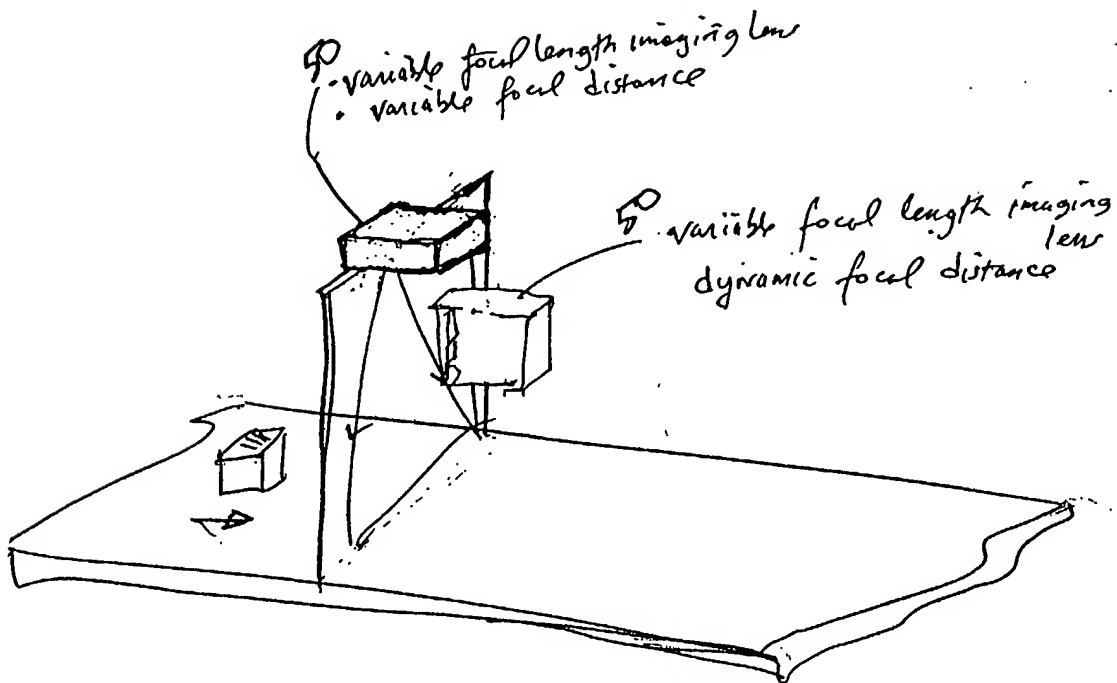 · variable focal length imaging lens
· variable focal distance
variable focal length imaging
lens
dynamic focal distance